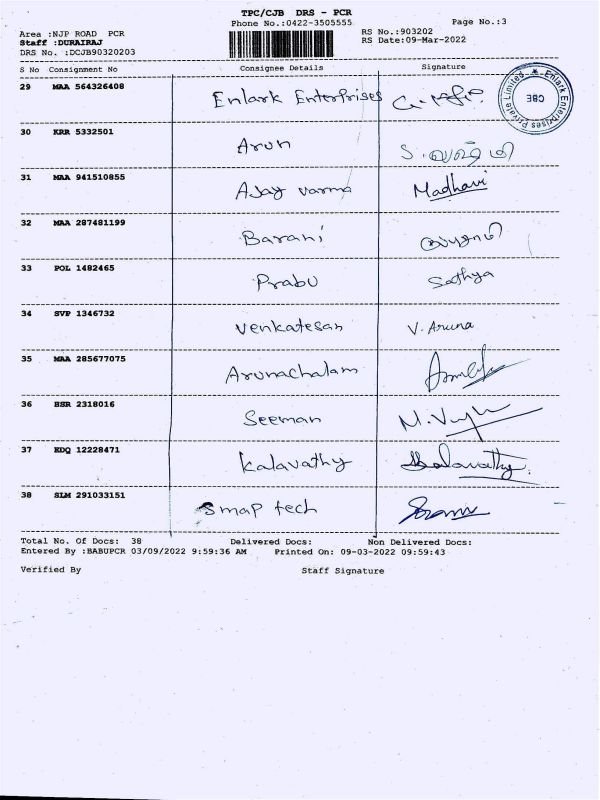 TPC/CJB DRS - PCR
Phone No.:0422-3505555
Page No.:3
Area :NJP ROAD PCR
RS No.:903202
Staff :DURAIRAJ
RS Date:09-Mar-2022
DRS No. :DCJB90320203
S No Consignment No Consignee Details Signature
29 MAA 564326408 Enlark Enterprises
Enlark Enterprises Private Limited
CBE
30 KRR 5332501 Arun
31 MAA 941510855 Ajay varma Madhavi
32 MAA 287481199 Barani
33 POL 1482465 Prabu Sathya
34 SVP 1346732 Venkatesan V. Aruna
35 MAA 285677075 Arunachalam
36 HSR 2318016 Seeman
37 KDQ 12228471 Kalavathy Kalavathy
38 SLM 291033151 Smap tech
Total No. Of Docs: 38 Delivered Docs: Non Delivered Docs:
Entered By :BABUPCR 03/09/2022 9:59:36 AM Printed On: 09-03-2022 09:59:43
Verified By Staff Signature